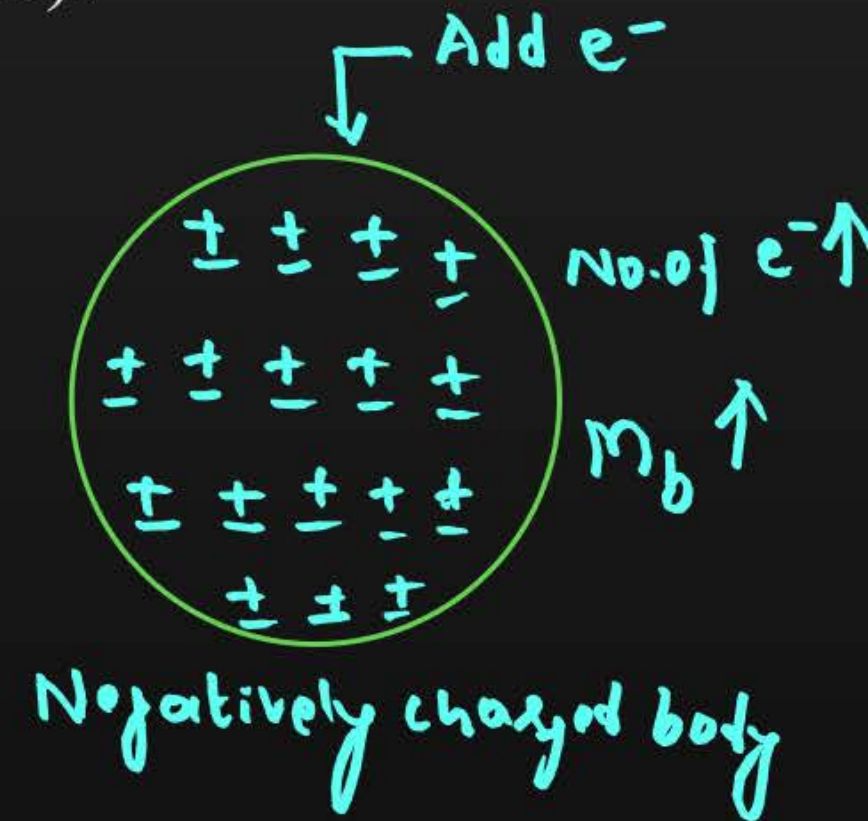 Add e⁻
± ± ± ±
No. of e⁻↑
± ± ± ± ±
M_b ↑
± ± ± ± ±
± ± ±
Negatively charged body